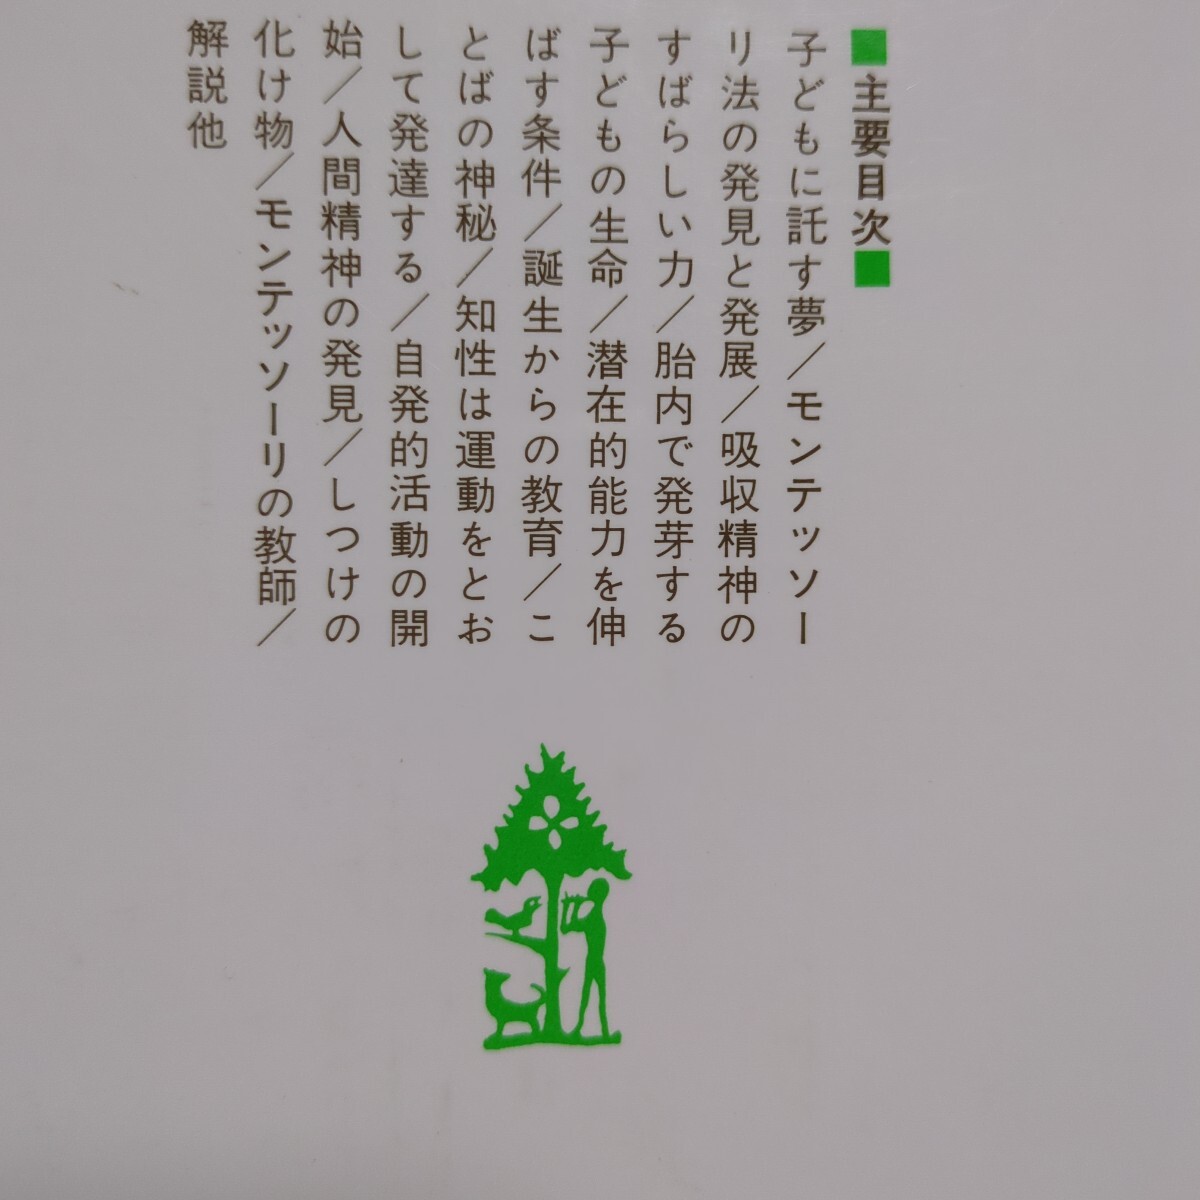 ■主要目次■
子どもに託す夢／モンテッソー
リ法の発見と発展／吸収精神の
すばらしい力／胎内で発芽する
子どもの生命／潜在的能力を伸
ばす条件／誕生からの教育／こ
とばの神秘／知性は運動をとお
して発達する／自発的活動の開
始／人間精神の発見／しつけの
化け物／モンテッソーリの教師／
解説他